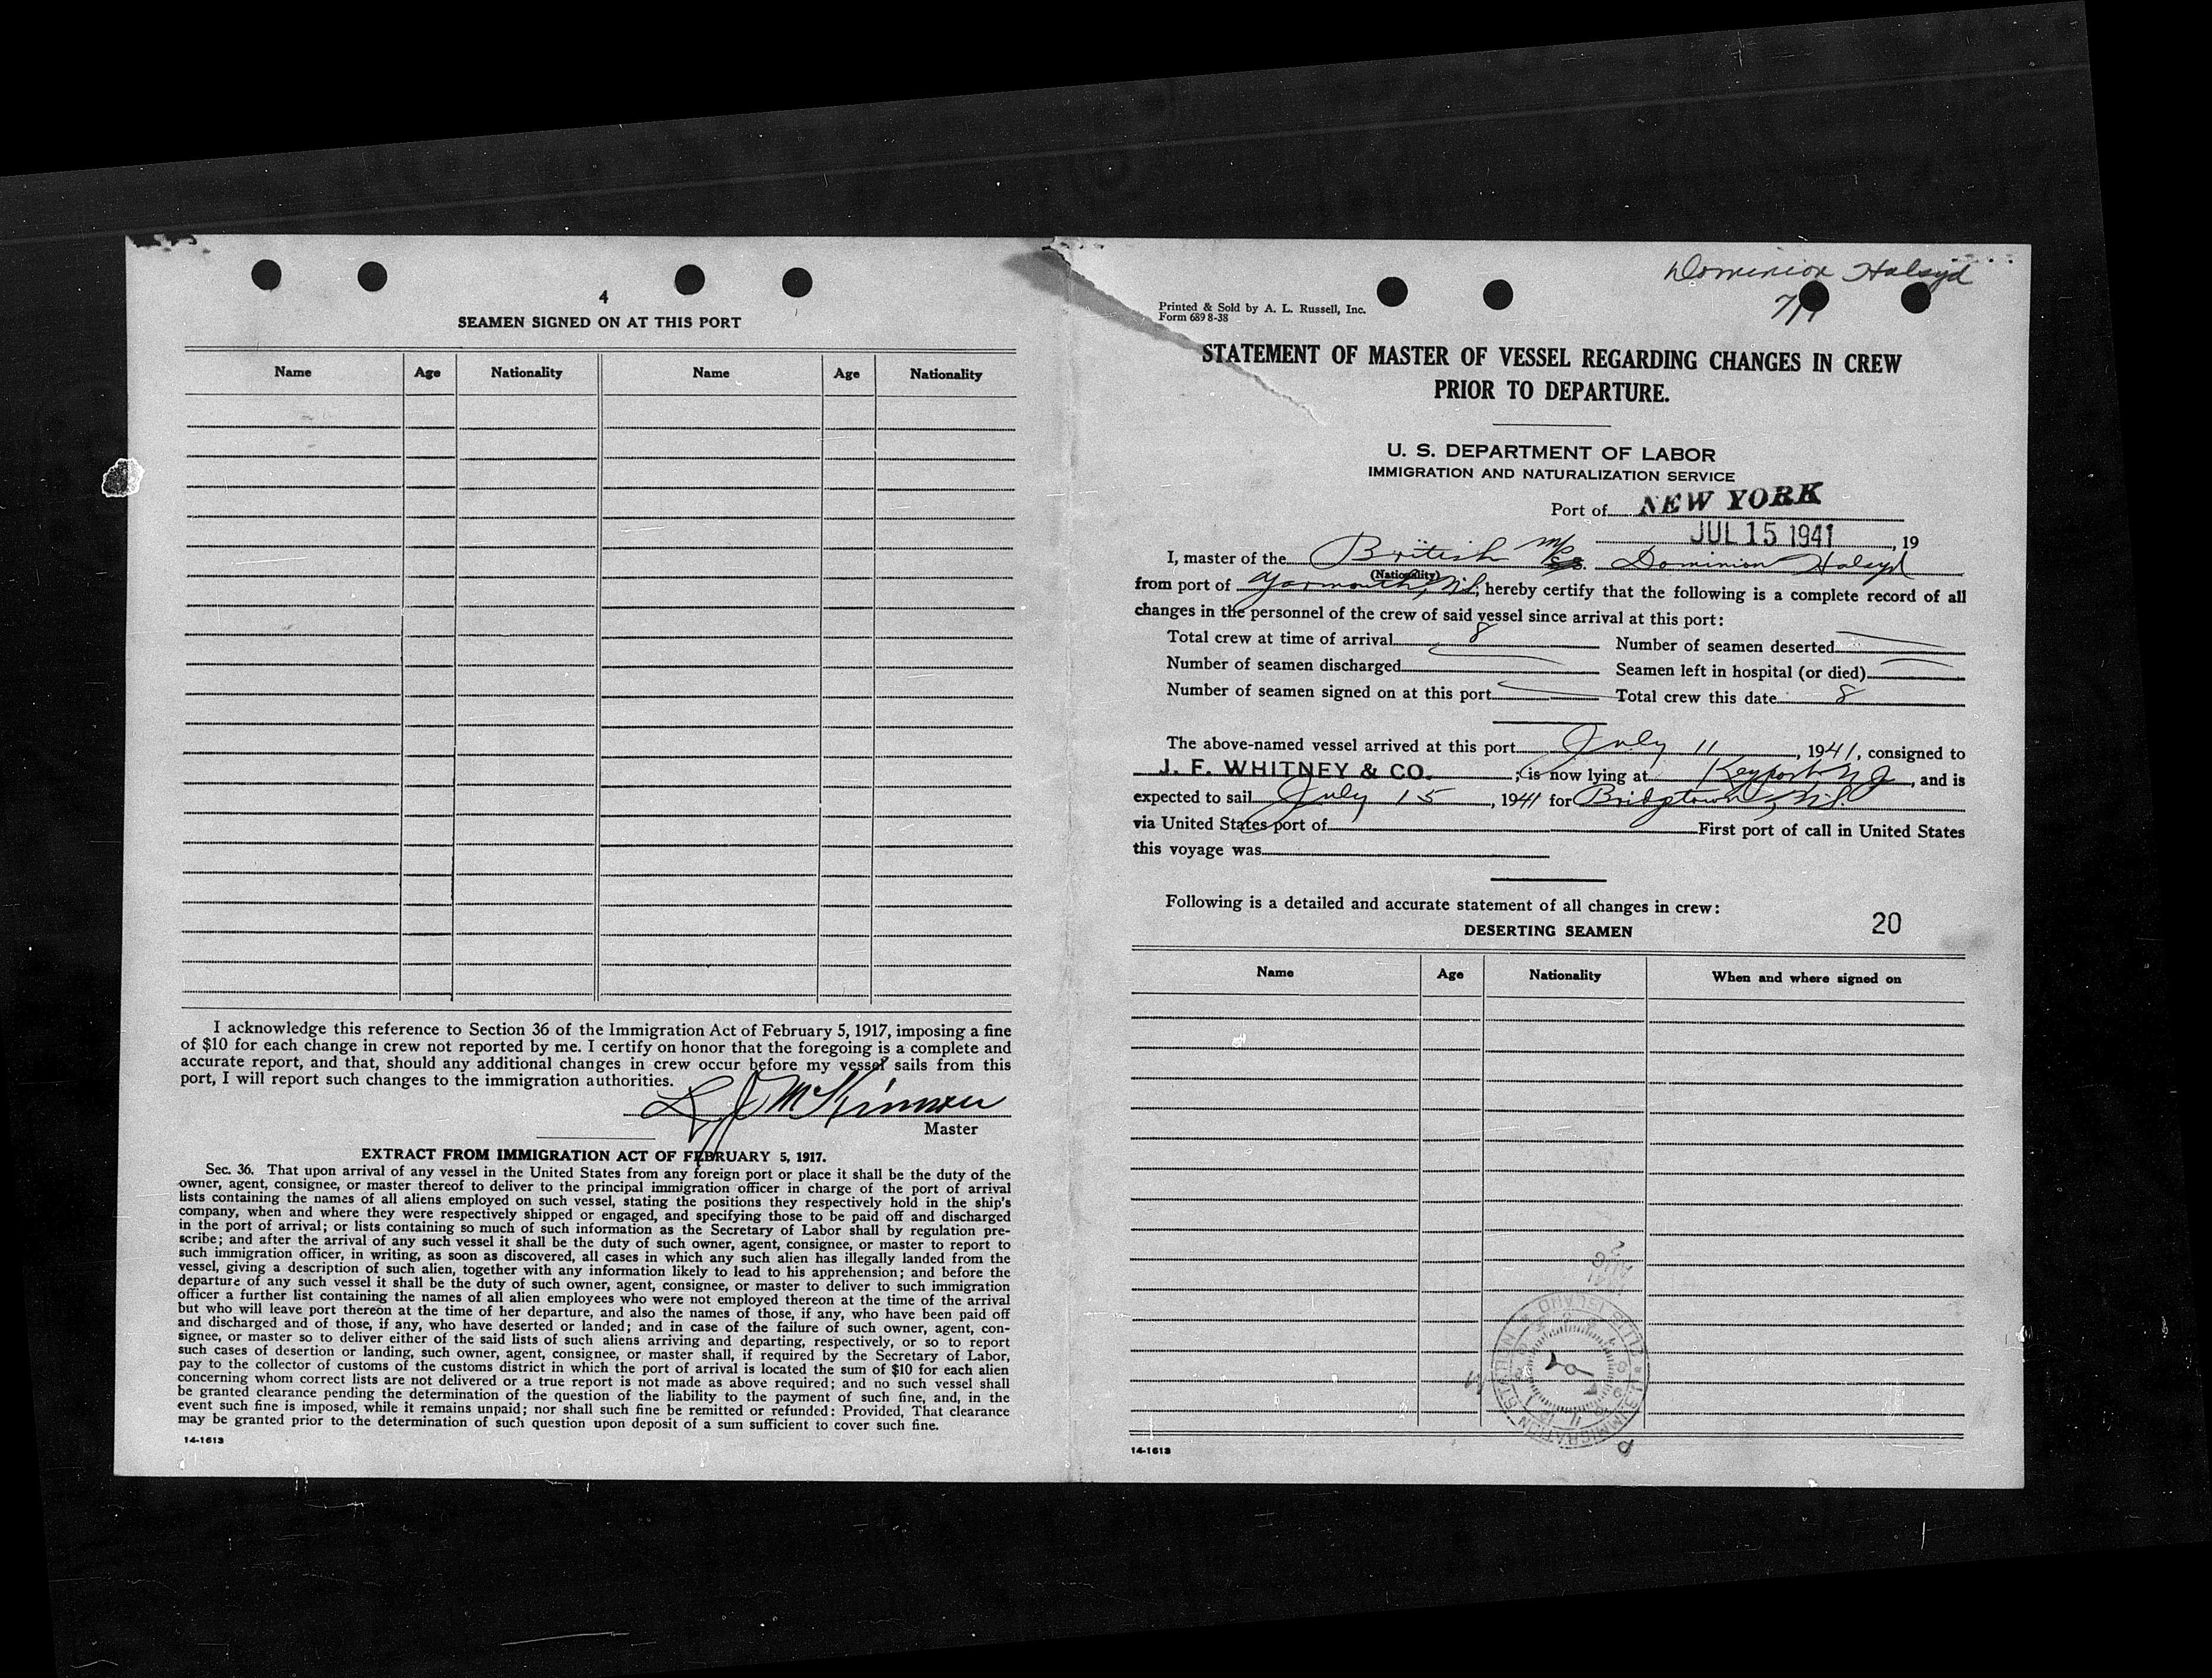 4
SEAMEN SIGNED ON AT THIS PORT
Name Age Nationality Name Age Nationality
I acknowledge this reference to Section 36 of the Immigration Act of February 5, 1917, imposing a fine
of $10 for each change in crew not reported by me. I certify on honor that the foregoing is a complete and
accurate report, and that, should any additional changes in crew occur before my vessel sails from this
port, I will report such changes to the immigration authorities.
L J McKinnon
Master
EXTRACT FROM IMMIGRATION ACT OF FEBRUARY 5, 1917.
Sec. 36. That upon arrival of any vessel in the United States from any foreign port or place it shall be the duty of the
owner, agent, consignee, or master thereof to deliver to the principal immigration officer in charge of the port of arrival
lists containing the names of all aliens employed on such vessel, stating the positions they respectively hold in the ship's
company, when and where they were respectively shipped or engaged, and specifying those to be paid off and discharged
in the port of arrival; or lists containing so much of such information as the Secretary of Labor shall by regulation pre-
scribe; and after the arrival of any such vessel it shall be the duty of such owner, agent, consignee, or master to report to
such immigration officer, in writing, as soon as discovered, all cases in which any such alien has illegally landed from the
vessel, giving a description of such alien, together with any information likely to lead to his apprehension; and before the
departure of any such vessel it shall be the duty of such owner, agent, consignee, or master to deliver to such immigration
officer a further list containing the names of all alien employees who were not employed thereon at the time of the arrival
but who will leave port thereon at the time of her departure, and also the names of those, if any, who have been paid off
and discharged and of those, if any, who have deserted or landed; and in case of the failure of such owner, agent, con-
signee, or master so to deliver either of the said lists of such aliens arriving and departing, respectively, or so to report
such cases of desertion or landing, such owner, agent, consignee, or master shall, if required by the Secretary of Labor,
pay to the collector of customs of the customs district in which the port of arrival is located the sum of $10 for each alien
concerning whom correct lists are not delivered or a true report is not made as above required; and no such vessel shall
be granted clearance pending the determination of the question of the liability to the payment of such fine, and, in the
event such fine is imposed, while it remains unpaid; nor shall such fine be remitted or refunded: Provided, That clearance
may be granted prior to the determination of such question upon deposit of a sum sufficient to cover such fine.
14-1613
Dominion Halsyd
Printed & Sold by A. L. Russell, Inc.
Form 689 8-38
STATEMENT OF MASTER OF VESSEL REGARDING CHANGES IN CREW
PRIOR TO DEPARTURE.
U. S. DEPARTMENT OF LABOR
IMMIGRATION AND NATURALIZATION SERVICE
Port of NEW YORK
JUL 15 1941, 19
I, master of the British M/S Dominion Halsyd
(Nationality)
from port of Yarmouth, N.S., hereby certify that the following is a complete record of all
changes in the personnel of the crew of said vessel since arrival at this port:
Total crew at time of arrival 8 Number of seamen deserted
Number of seamen discharged Seamen left in hospital (or died)
Number of seamen signed on at this port Total crew this date 8
The above-named vessel arrived at this port July 11, 1941, consigned to
J. F. WHITNEY & CO. ; is now lying at Keyport N J, and is
expected to sail July 15, 1941 for Bridgtown, N.S.
via United States port of First port of call in United States
this voyage was
Following is a detailed and accurate statement of all changes in crew:
20
DESERTING SEAMEN
Name Age Nationality When and where signed on
1941
AUG
2
U.S. IMMIGRATION STATION ELLIS ISLAND
14-1613